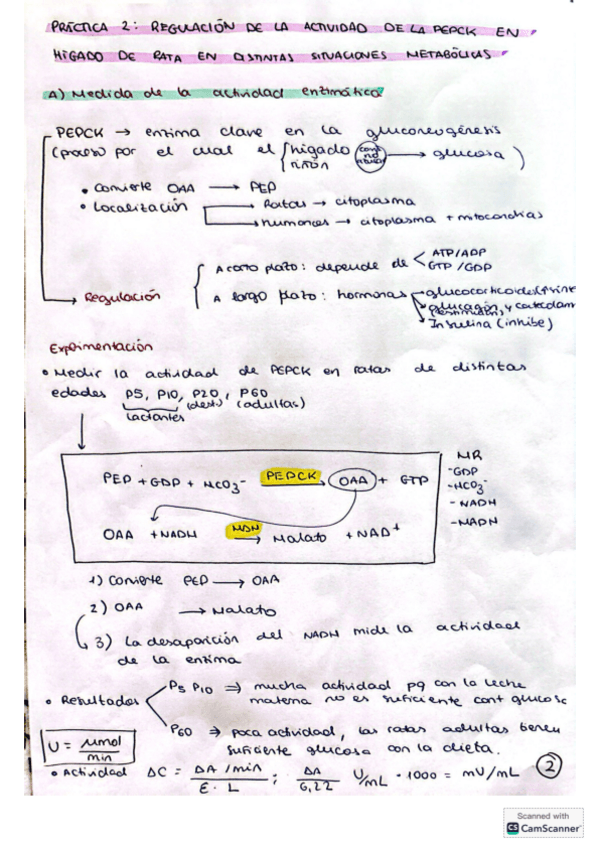 PRÁCTICA 2: REGULACIÓN DE LA ACTIVIDAD DE LA PEPCK EN
HÍGADO DE RATA EN DISTINTAS SITUACIONES METABÓLICAS
A) Medida de la actividad enzimática
PEPCK → enzima clave en la gluconeogénesis
(proceso por el cual el { hígado riñón → glucosa )
• Convierte OAA → PEP
• Localización → Ratas → citoplasma
→ humanos → citoplasma + mitocondrias
A corto plazo: depende de < ATP/ADP
GTP/GDP
→ Regulación
A largo plazo: hormonas → glucocorticoides
→ glucagón, y
→ Insulina (inhibe)
Experimentación
• Medir la actividad de PEPCK en ratas de distintas
edades P5, P10, P20, P60
lactantes (dest) (adultas)
PEP + GDP + HCO3⁻ PEPCK → OAA + GTP
OAA + NADH MDH → Malato + NAD⁺
MR
-GDP
-HCO3⁻
- NADH
-MADH
1) Convierte PEP → OAA
2) OAA → Malato
3) La desaparición del NADH mide la actividad
de la enzima
• Resultados P5 P10 ⇒ mucha actividad pq con la leche
materna no es suficiente cant glucosa
P60 ⇒ poca actividad, las ratas adultas tienen
suficiente glucosa con la dieta.
U = μmol / min
• Actividad ΔC = ΔA/min / Ɛ · L ; ΔA / 6,22 U/mL · 1000 = mU/mL
2
Scanned with
CS CamScanner